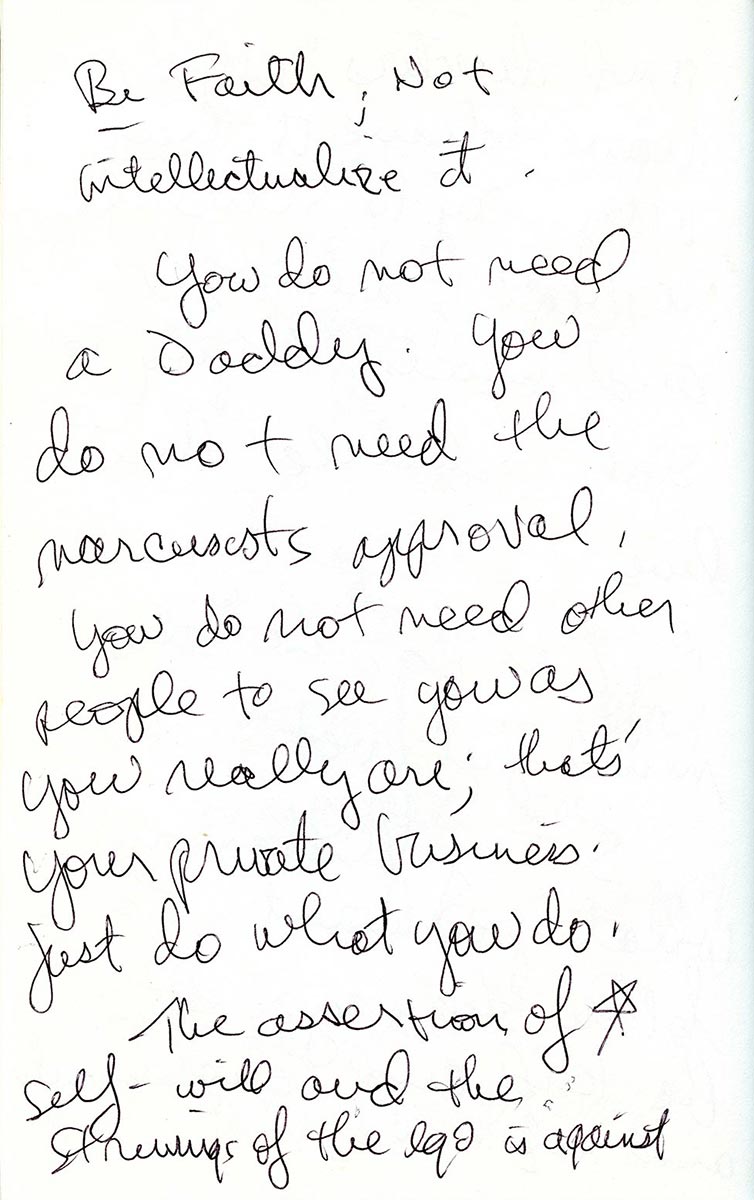 Be Faith; Not
intellectualize it.
You do not need
a Daddy. You
do not need the
narcissists approval.
You do not need other
people to see you as
you really are; thats'
your private business.
Just do what you do.
The assertion of ☆
self-will and the
strivings of the ego is against